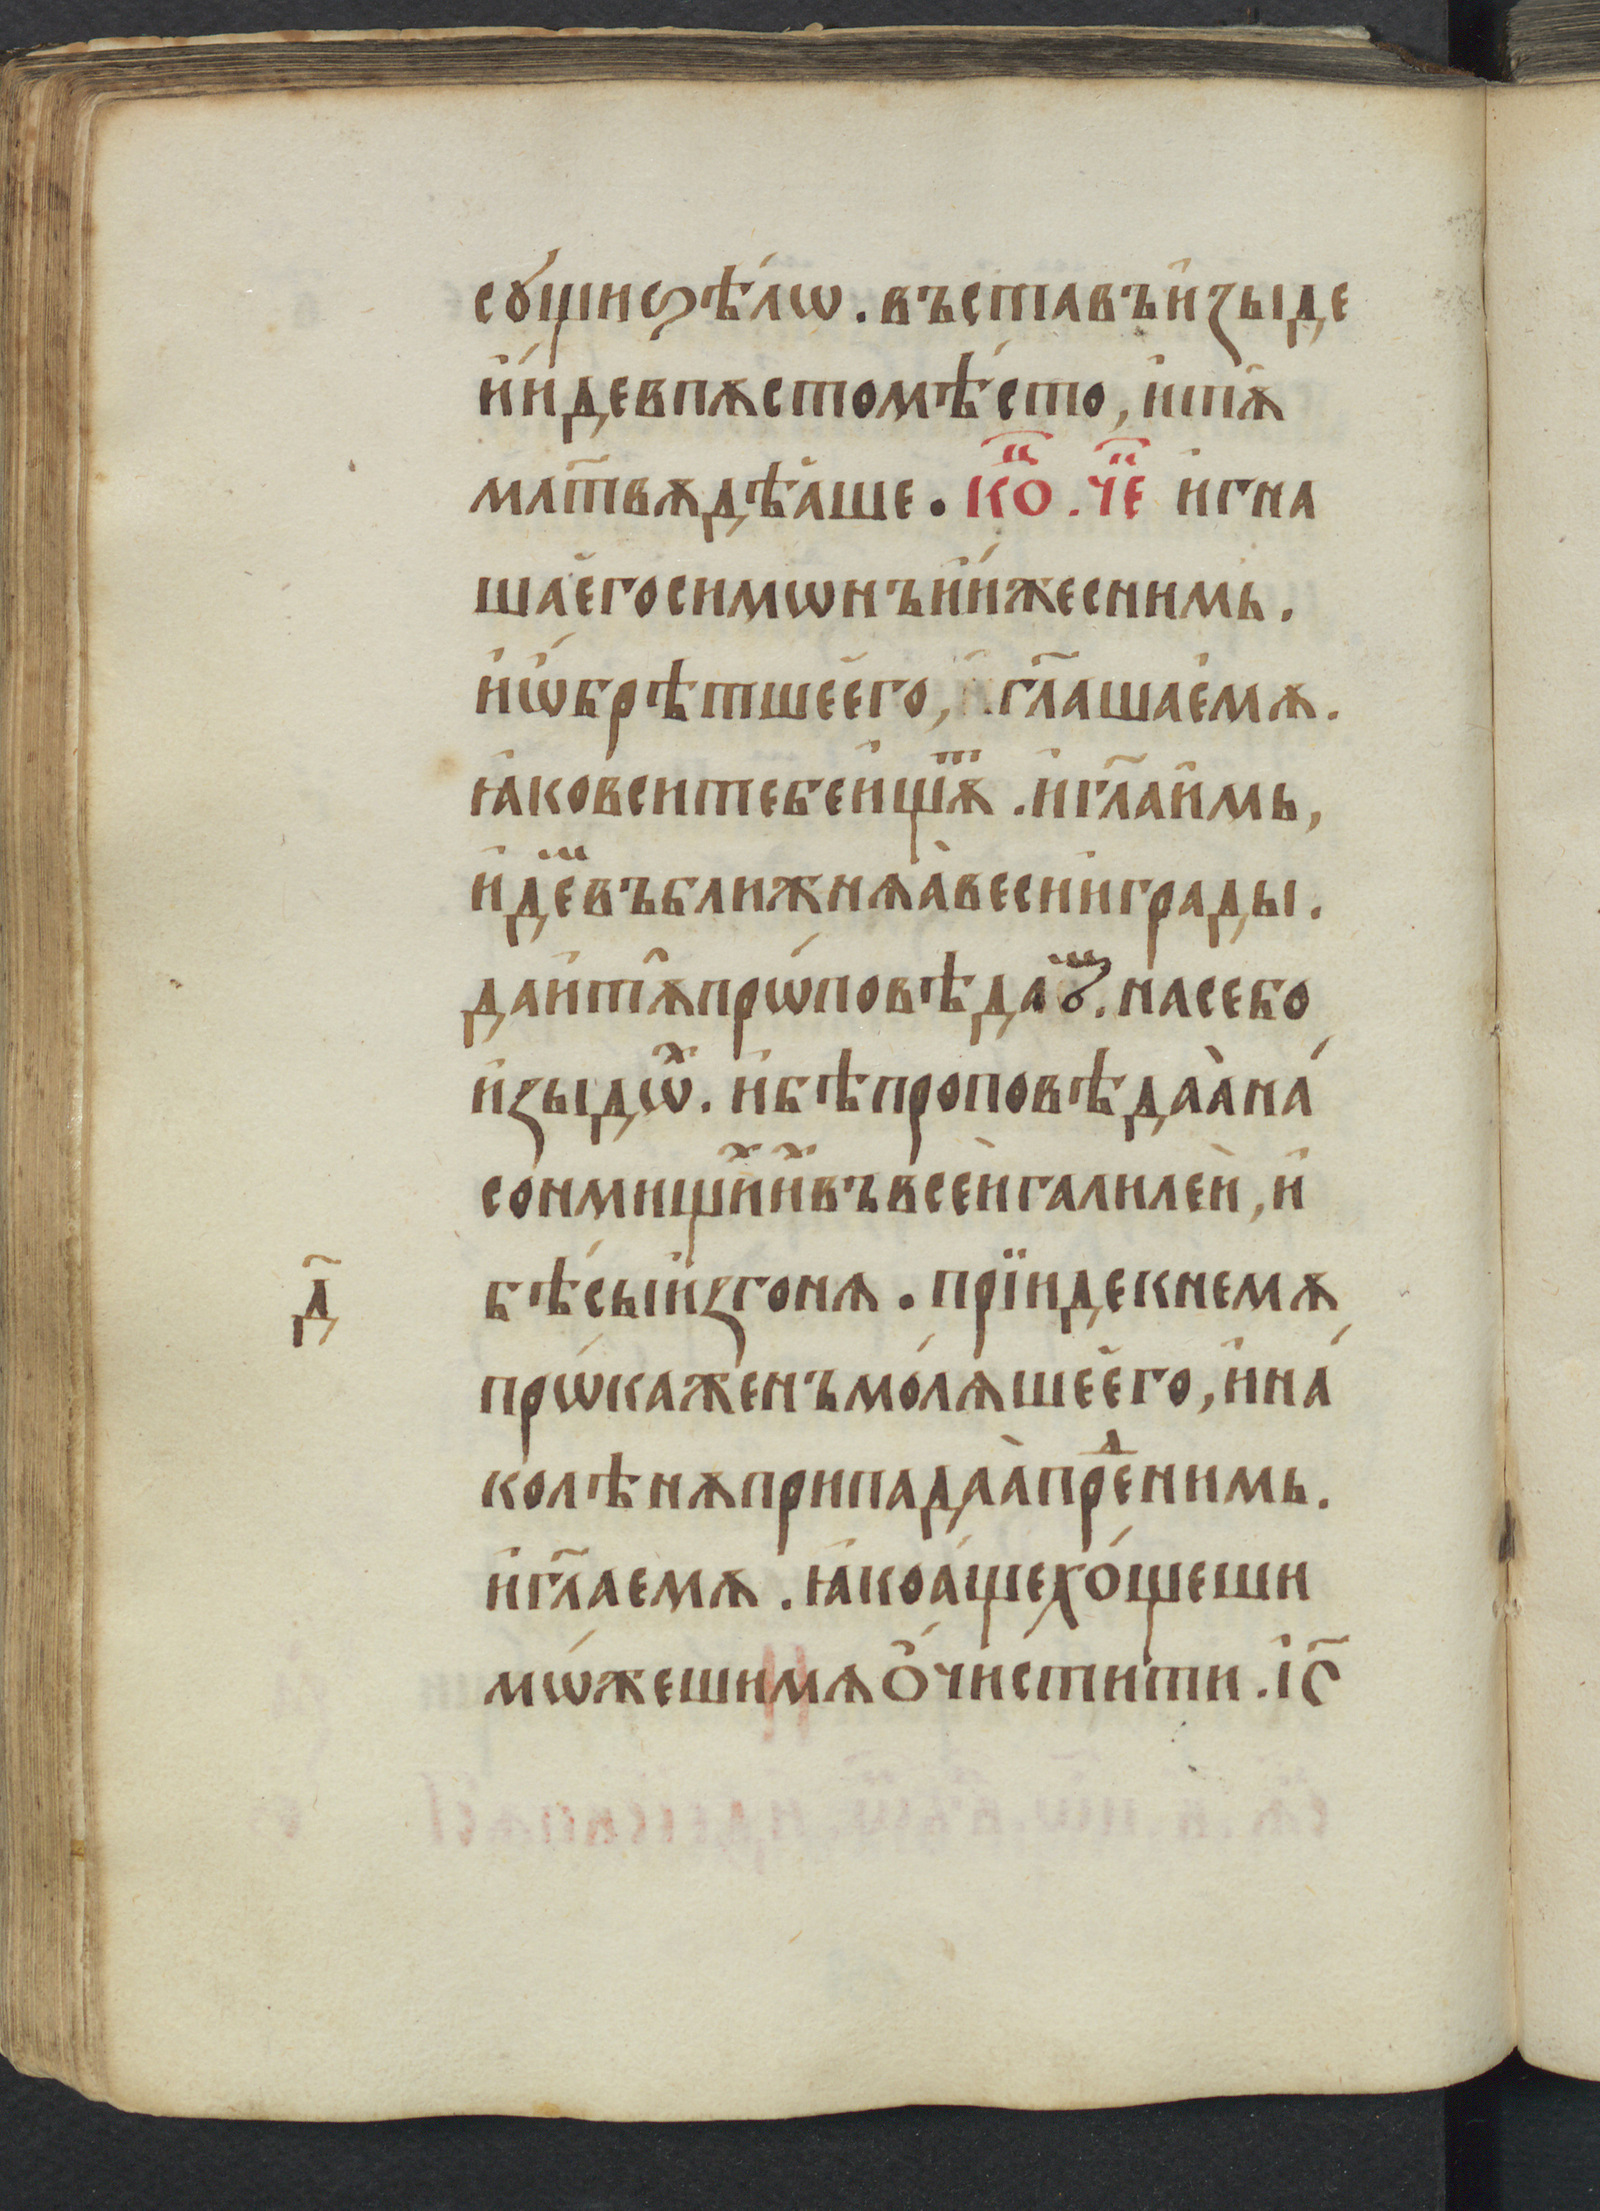 сꙋщи ѕѣлѡ. въставъ изыде
и иде в пꙗсто мѣсто, и тꙋ
млтвѫ дѣаше. кѡц҃. чет҃ и гна
ша его симѡнъ и иже с нимь.
и ѡбрѣтше его, и глаша емѫ.
ꙗко вси тебе ищѫт. и гла имь,
идѣм въ ближнѧа веси и грады.
да и тѫ прѡповѣдаꙋ. на се бо
изыдѡх. и бѣ проповѣдаа на
сонмищих их въ всеи галилеи, и
д҃
бѣсы изгонѧ. прїиде к немѫ
прѡкаженъ молѧше его, и на
колѣнѫ припадаа пред нимь.
и гла емѫ. ꙗко аще хощеши
мѡжеши мѧ очистити. іс҃